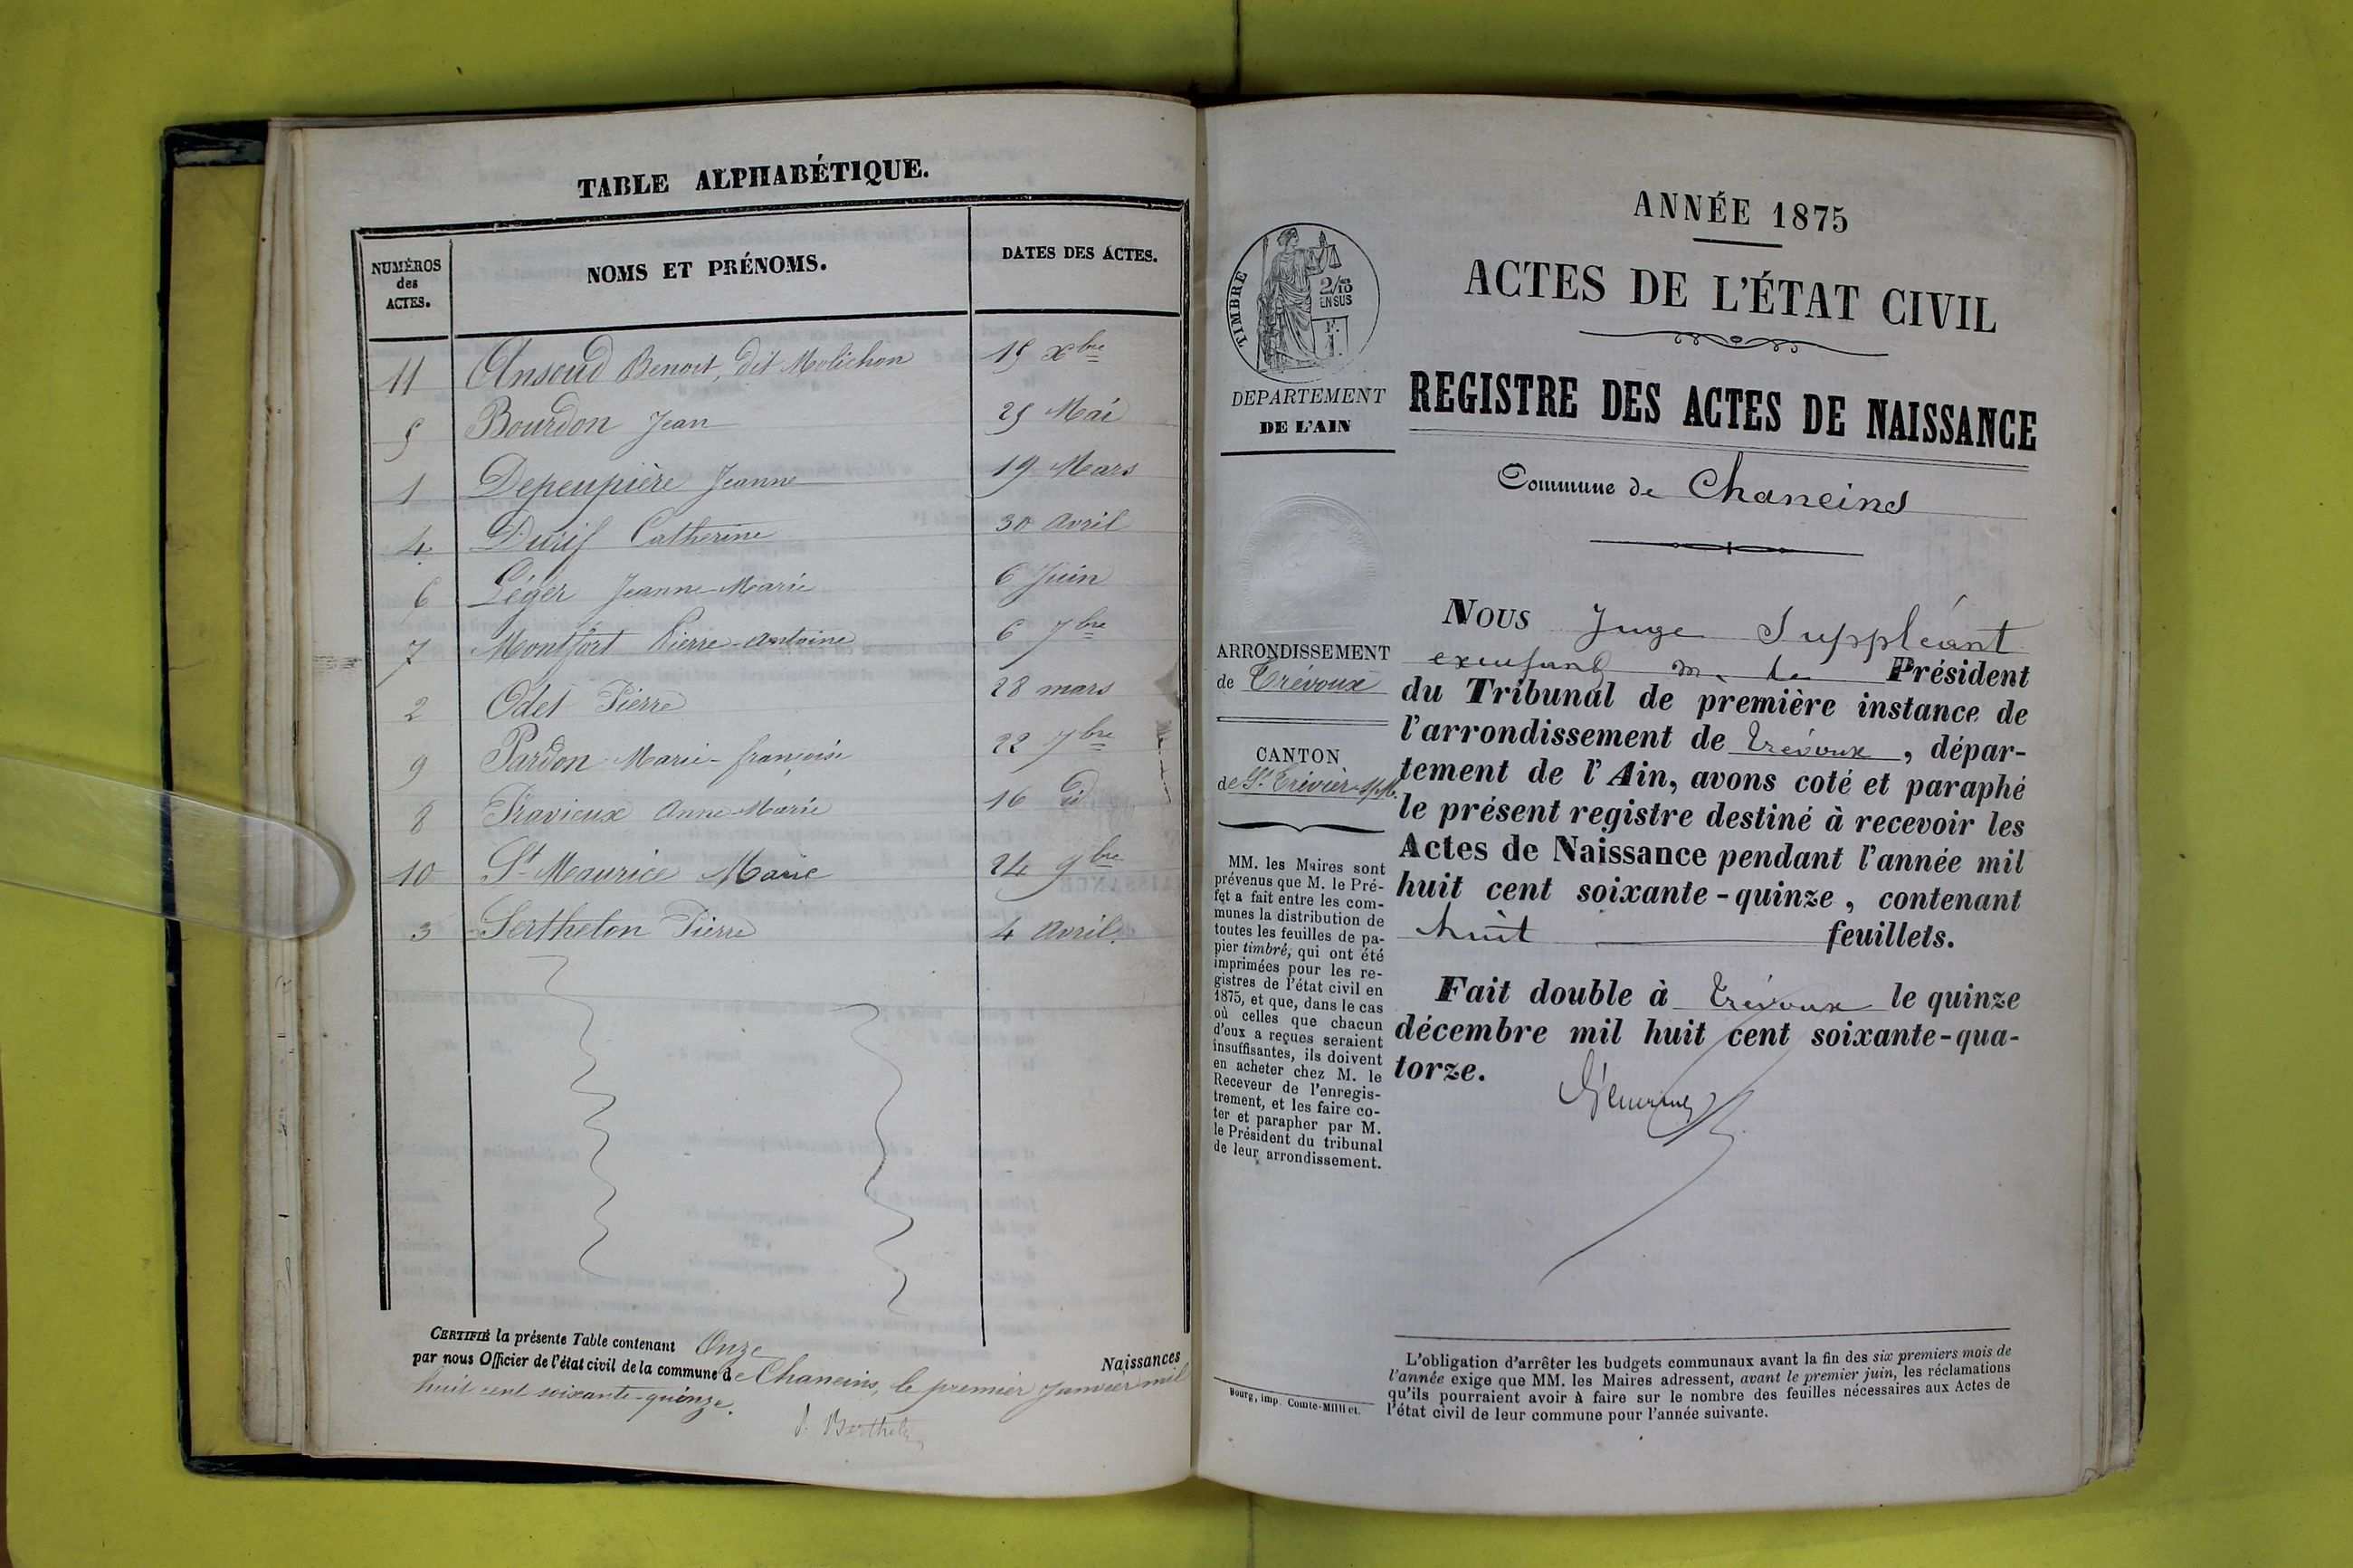 TABLE ALPHABÉTIQUE.
NUMÉROS des ACTES. NOMS ET PRÉNOMS. DATES DES ACTES.
11 Ansoud Benoit, dit Molichon 15 xbre
5 Bourdon Jean 25 Mai
1 Depeupière Jeanne 19 Mars
4 Durif Catherine 30 avril
6 Léger Jeanne-Marie 6 Juin
7 Montfort Pierre-Antoine 6 7bre
2 Odet Pierre 28 mars
9 Pardon Marie-françoise 22 7bre
8 Pravieux Anne-Marie 16 id
10 St Maurice Marie 24 9bre
3 Serthelon Pierre 4 avril.
CERTIFIÉ la présente Table contenant Onze Naissances
par nous Officier de l'état civil de la commune de Chaneins, le premier Janvier mil
huit cent soixante-quinze.
ANNÉE 1875
ACTES DE L'ÉTAT CIVIL
REGISTRE DES ACTES DE NAISSANCE
Commune de Chaneins
TIMBRE
2/10
EN SUS
DEPARTEMENT
DE L'AIN
ARRONDISSEMENT
de Trévoux
CANTON
de St Trivier-s/M.
MM. les Maires sont
prévenus que M. le Pré-
fet a fait entre les com-
munes la distribution de
toutes les feuilles de pa-
pier timbré, qui ont été
imprimées pour les re-
gistres de l'état civil en
1875, et que, dans le cas
où celles que chacun
d'eux a reçues seraient
insuffisantes, ils doivent
en acheter chez M. le
Receveur de l'enregis-
trement, et les faire co-
ter et parapher par M.
le Président du tribunal
de leur arrondissement.
NOUS Juge Suppléant
m. le Président
du Tribunal de première instance de
l'arrondissement de Trévoux, dépar-
tement de l'Ain, avons coté et paraphé
le présent registre destiné à recevoir les
Actes de Naissance pendant l'année mil
huit cent soixante-quinze, contenant
huit feuillets.
Fait double à Trévoux le quinze
décembre mil huit cent soixante-qua-
torze.
L'obligation d'arrêter les budgets communaux avant la fin des six premiers mois de
l'année exige que MM. les Maires adressent, avant le premier juin, les réclamations
qu'ils pourraient avoir à faire sur le nombre des feuilles nécessaires aux Actes de
l'état civil de leur commune pour l'année suivante.
Bourg, imp. Comte-Milliet.